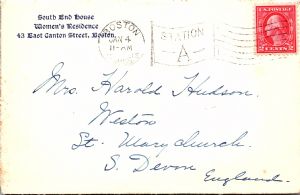 South End House
Women's Residence
43 East Canton Street, Boston.
BOSTON
JAN 4
11-AM
STATION
A
2 CENTS 2
Mrs. Harold Hudson.
Weston
St. Marychurch.
S. Devon
England.